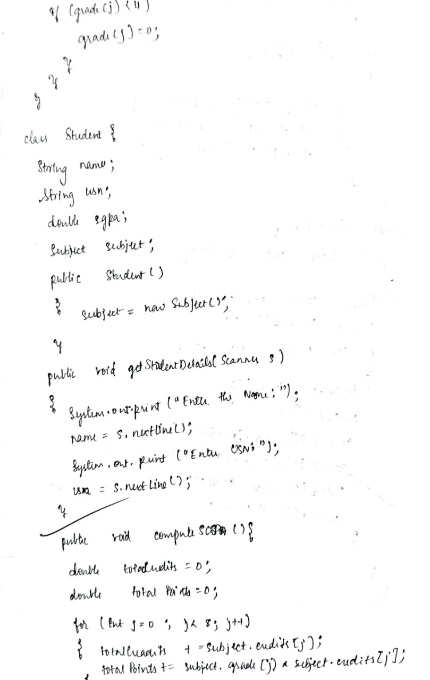 if (grade[j] < 4)
grade[j] = 0;
}
}
}
class Student {
String name;
String usn;
double sgpa;
Subject subject;
public Student()
{ subject = new Subject();
}
public void getStudentDetails( Scanner s )
{ System.out.print ("Enter the Name: ");
name = s.nextLine();
System.out.print ("Enter USN: ");
usn = s.nextLine();
}
public void compute SGPA () {
double totalCredits = 0;
double total Points = 0;
for ( int j = 0 ; j < 8; j++)
{ totalCredits += subject.credits [j];
total Points += subject.grade [j] * subject.credits [j];
{